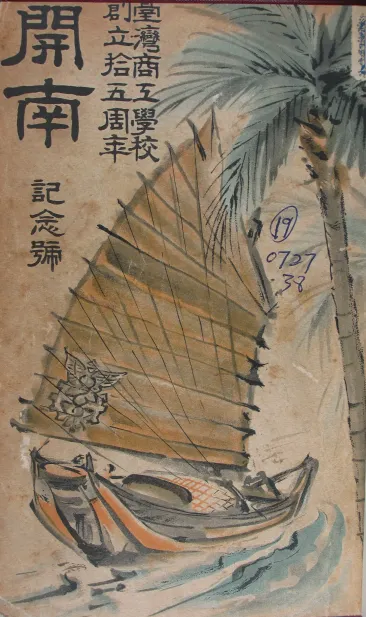 臺灣商工學校
創立拾五周年
開南
記念號
19
0727
38